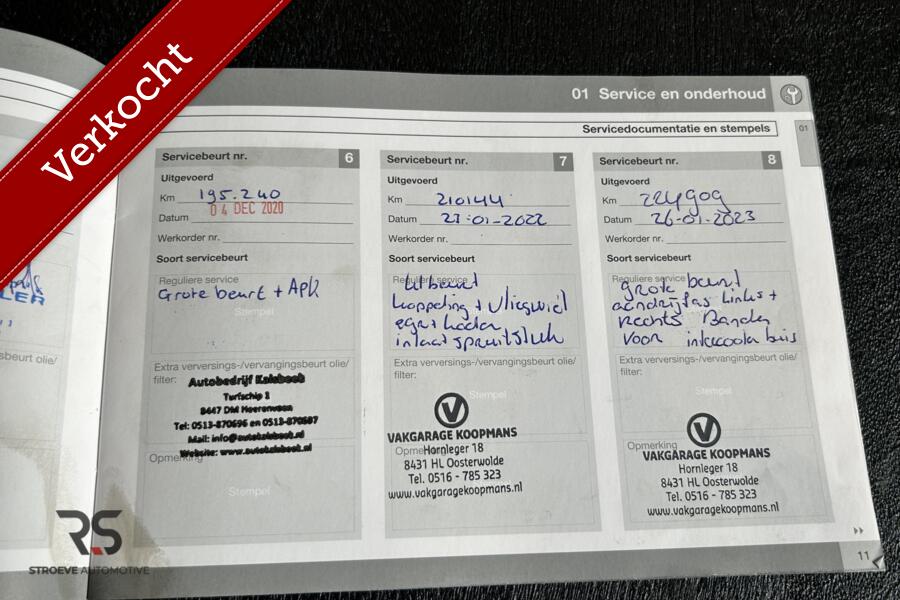 Verkocht
01 Service en onderhoud
Servicedocumentatie en stempels
01
Servicebeurt nr. 6
Uitgevoerd
Km 195.240
Datum 04 DEC 2020
Werkorder nr.
Soort servicebeurt
Reguliere service
Grote beurt + Apk
Stempel
Extra verversings-/vervangingsbeurt olie/
filter:
Autobedrijf Kalsbeek
Turfschip 1
8447 DM Heerenveen
Tel: 0513-870696 en 0513-870697
Mail: info@autokalsbeek.nl
Website: www.autokalsbeek.nl
Opmerking
Stempel
Servicebeurt nr. 7
Uitgevoerd
Km 210144
Datum 27-01-2022
Werkorder nr.
Soort servicebeurt
Reguliere service
beurt
koppeling + vliegwiel
egr + koeler
inlaatspruitstuk
Extra verversings-/vervangingsbeurt olie/
filter:
Stempel
V
VAKGARAGE KOOPMANS
Opmerking
Hornleger 18
8431 HL Oosterwolde
Tel. 0516 - 785 323
www.vakgaragekoopmans.nl
Servicebeurt nr. 8
Uitgevoerd
Km 224909
Datum 26-01-2023
Werkorder nr.
Soort servicebeurt
Reguliere service
grote beurt
aandrijfas Links +
Rechts Banden
voor intercooler buis
Extra verversings-/vervangingsbeurt olie/
filter:
Stempel
V
Opmerking
VAKGARAGE KOOPMANS
Hornleger 18
8431 HL Oosterwolde
Tel. 0516 - 785 323
www.vakgaragekoopmans.nl
11
LER
sbeurt olie/
RS
STROEVE AUTOMOTIVE